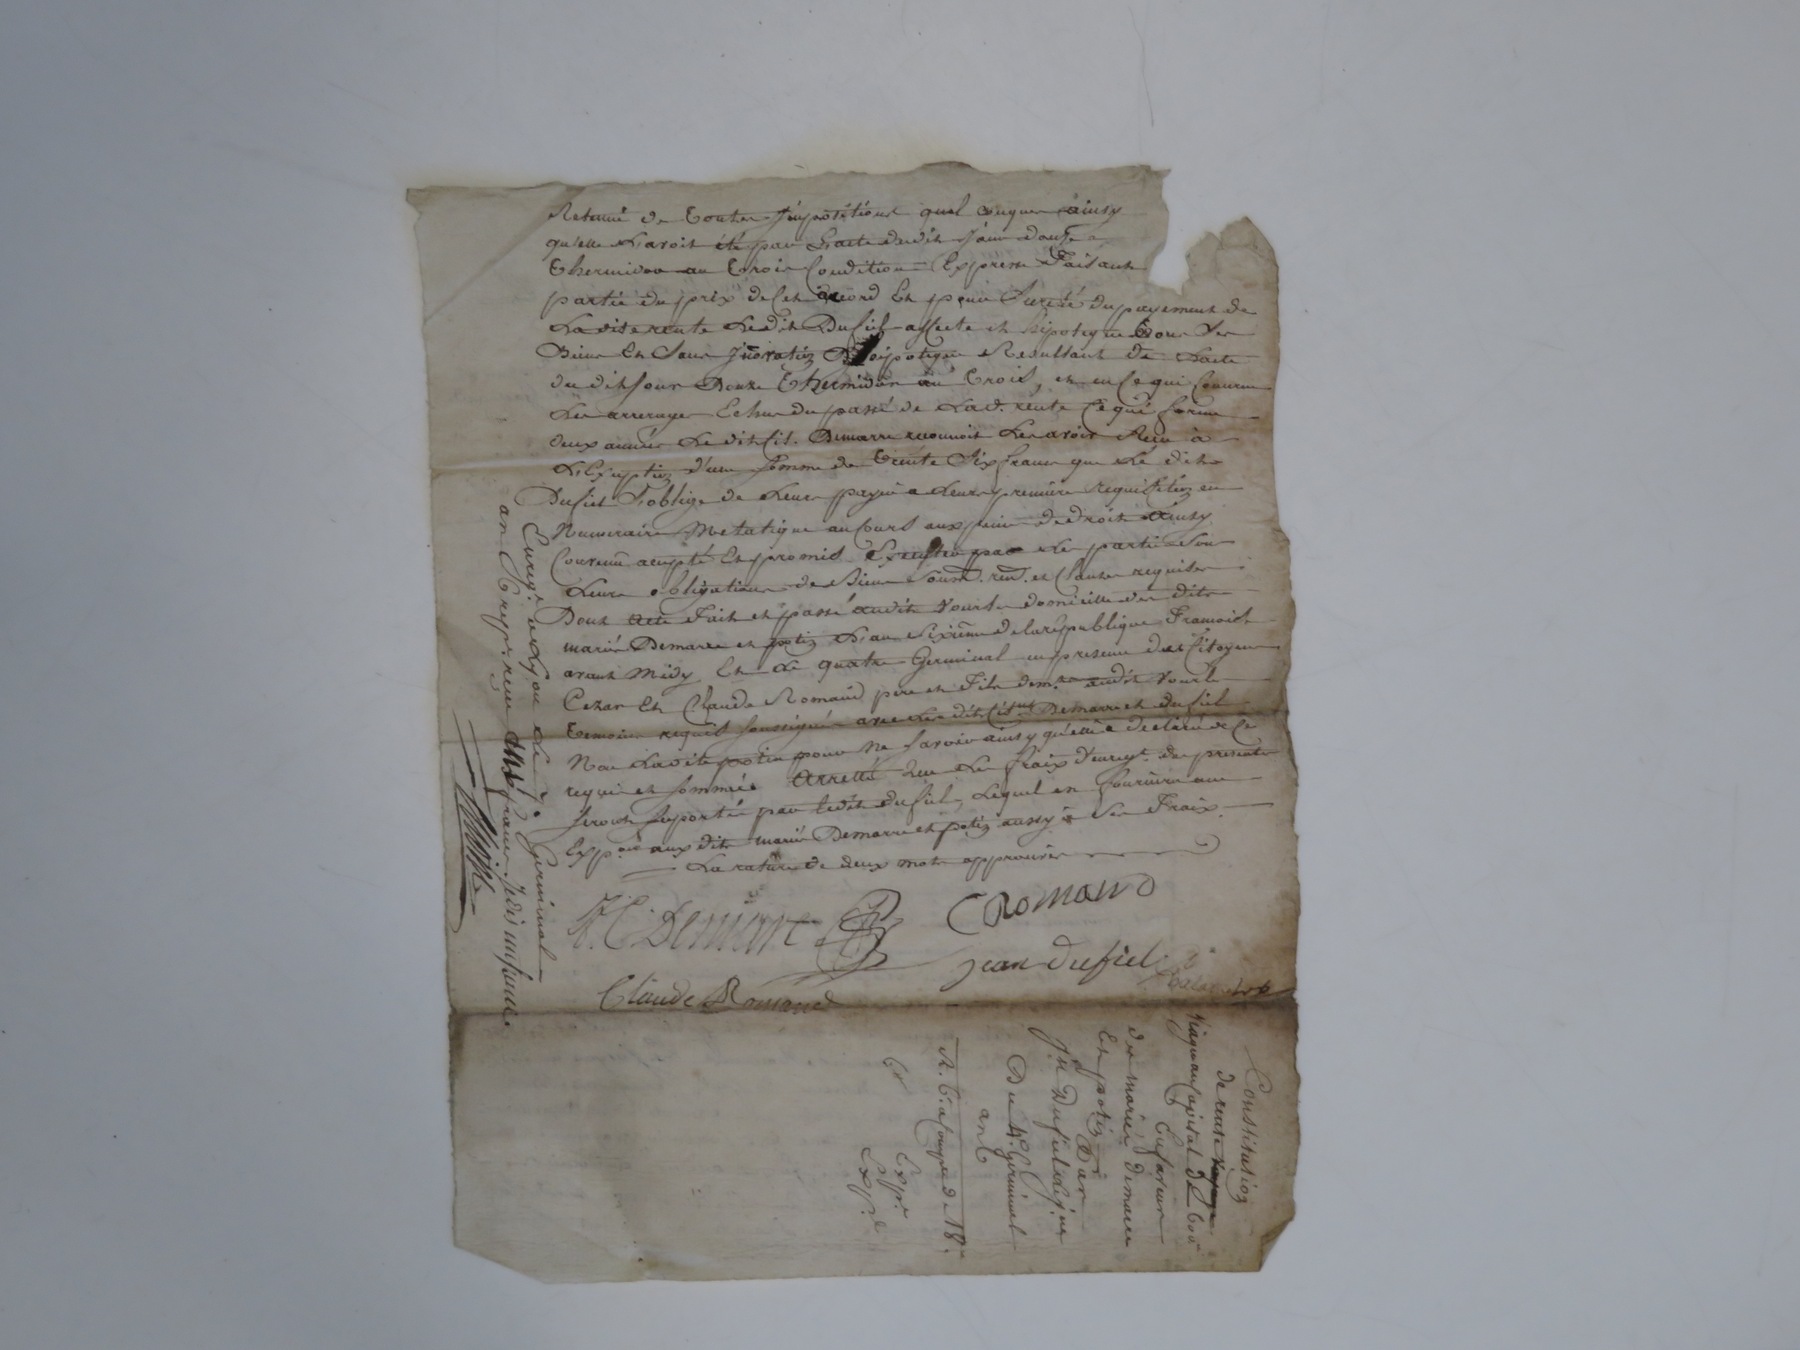 Retenüe de toutes Jmpositions quel conques ainsy
qu'elle L'avoit été par L'acte dudit Jour douze
thermidor au trois Condition Expresse Faisant
partie du prix de Cet accord Et pour Sureté du payement de
La dite rente Ledit Dufiel affecte et hipoteque tous Ses
Biens Et Sans Jnovation D'hipoteque Resultant de Lacte
du dit Jour Douze Thermidor an trois, et en ce qui Concerne
Les arrerages Echus du passé de Lad. rente Ce qui forme
deux années Le dit Cit. Demarre reconnoit Les avoir Reçu à
L'Exeption d'une Somme de trente Six francs que Le dit
Dufiel S'oblige de Leurs payer a Leurs première requisition en
Numeraire Metalique au Cours aux peine de droit ainsy
Convenû accepté Et promis Executer par Les parties Sous
Leurs obligations de Biens Soum. ren. et Clauses requises
Dont acte Fait et passé audit Vourles domicille des dits
mariés Demarre et potin L'an Sixième de la république Francoise
avant Midy Et Le quatre Germinal en presence des Citoyens
Cezar Et Claude Romand pere et Fils dem.ts audit Vourles
temoins requis Soussignés avec Les dits Cit.ns Demarre et dufiel
Non Ladite potin pour ne Savoir ainsy qu'elle a declaré de Ce
requise et Sommée Arretté que Les fraix d'enregt. des presentes
Seront Suportés par ledit dufiel, Lequel en Fournira une
Exp.on aux dits mariés Demarre et potin aussy à Ses Fraix.
La rature de deux mots approuvée
Demare
C Romand
Jean Dufiel
Claude Romand
Enreg.é a Lyon Le Germinal
an 6 reçu francs Six dix un sous
Constitution
de rente
Viagere au Capital D 600
En faveur
des mariés demarre
Et potin Par
J.n Dufiel
Du 4 Germinal
an 6
Exp.r
Exp.é